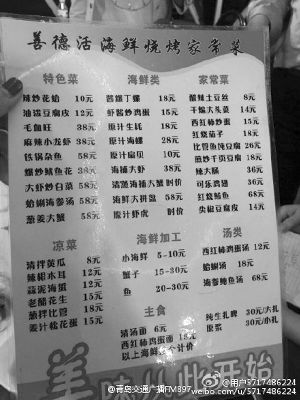 善德活海鲜烧烤家常菜
特色菜
辣炒花蛤 10元
油泼豆腐皮 12元
毛血旺 38元
麻辣小龙虾 38元
铁锅杂鱼 58元
爆炒鱿鱼花 38元
大虾炒白菜 58元
蛤蜊海参汤 58元
葱姜大蟹 58元
海鲜类
酱爆丁螺 18元
虾酱炒鸡蛋 15元
原汁生蚝 18元
原汁海螺 28元
原汁扇贝 10元
海捕大虾 38元
清蒸海捕大蟹 时价
海鲜大拼盘 58元
原汁虾虎 时价
家常菜
酸辣土豆丝 8元
干煸大头菜 14元
西红柿炒蛋 12元
红烧茄子 18元
比管鱼炖豆腐 26元
煎炒千页豆腐 18元
辣大肠 36元
可乐鸡翅 36元
红烧鲅鱼 68元
尖椒豆腐皮 14元
凉菜
清拌黄瓜 8元
辣根木耳 12元
蒜泥海蜇 12元
老醋花生 15元
葱拌比管 18元
姜汁松花蛋 15元
海鲜加工
小海鲜 5-10元
蟹子 15-30元
鱼 20-30元
主食
清汤面 6元
西红柿鸡蛋面 12元
以上海鲜
个计价
汤类
西红柿鸡蛋汤 12元
蛤蜊汤 18元
海参鲍鱼汤 68元
纯生扎啤 30元/大扎
原浆 30元/小扎
美
此开始
@青岛交通广播FM897
@用户5717486224
weibo.com/5717486224